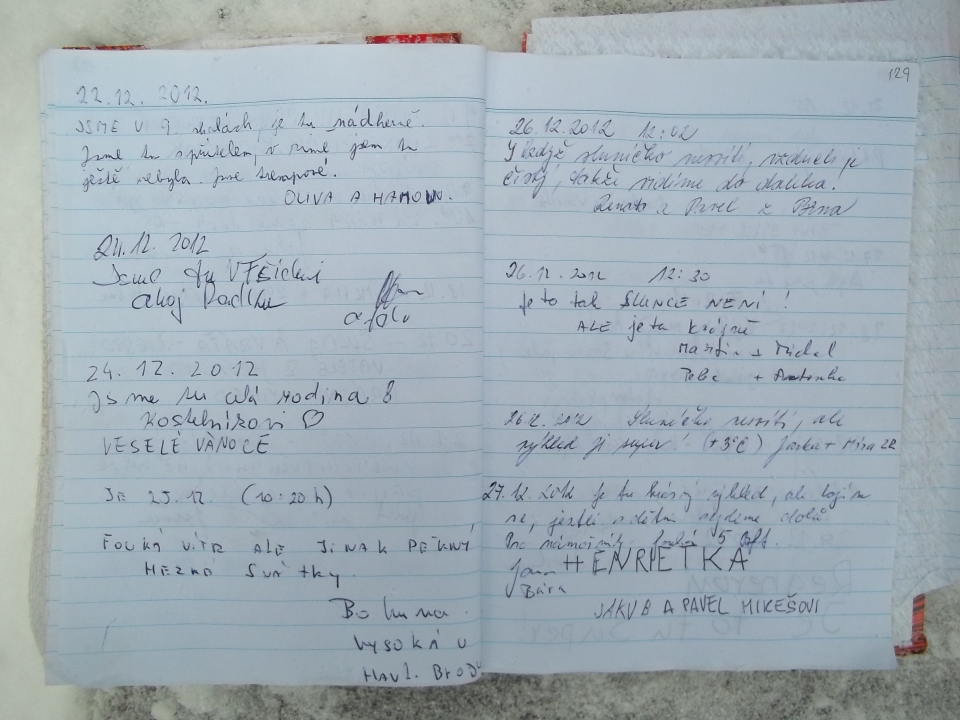 22.12.2012.
JSME V 9 skalách, je tu nádherně.
Jsme tu s přítelem, v zimě jsem tu
ještě nebyla. Jsme trempové.
OLIVA A
24.12. 2012
Jsme tu VŠICHNI
ahoj
24.12.2012
Jsme tu celá rodina
♡
VESELÉ VÁNOCE
JE 25.12. (10:20 h)
FOUKÁ VÍTR ALE JINAK PĚKNÝ
HEZKÉ SVÁTKY.
Bohuna
VYSOKÁ U
HAVL. BRODU
129
26.12.2012 12:02
I když sluníčko nesvítí, vzduch je
čistý, takže vidíme do daleka!
Renata a Pavel z Brna
26.12.2012 12:30
je to tak SLUNCE NENÍ!
ALE je tu krásně
Martin a Michal
+
26.12.2012 Sluníčko nesvítí, ale
výhled je super! (+3°C) Jarka + Míra ZR
27.12.2012 Je tu krásný výhled, ale bojím
se, jestli s dětmi sejdeme dolů.
Jana HENRIETKA
Bára
JAKUB A PAVEL MIKEŠOVI